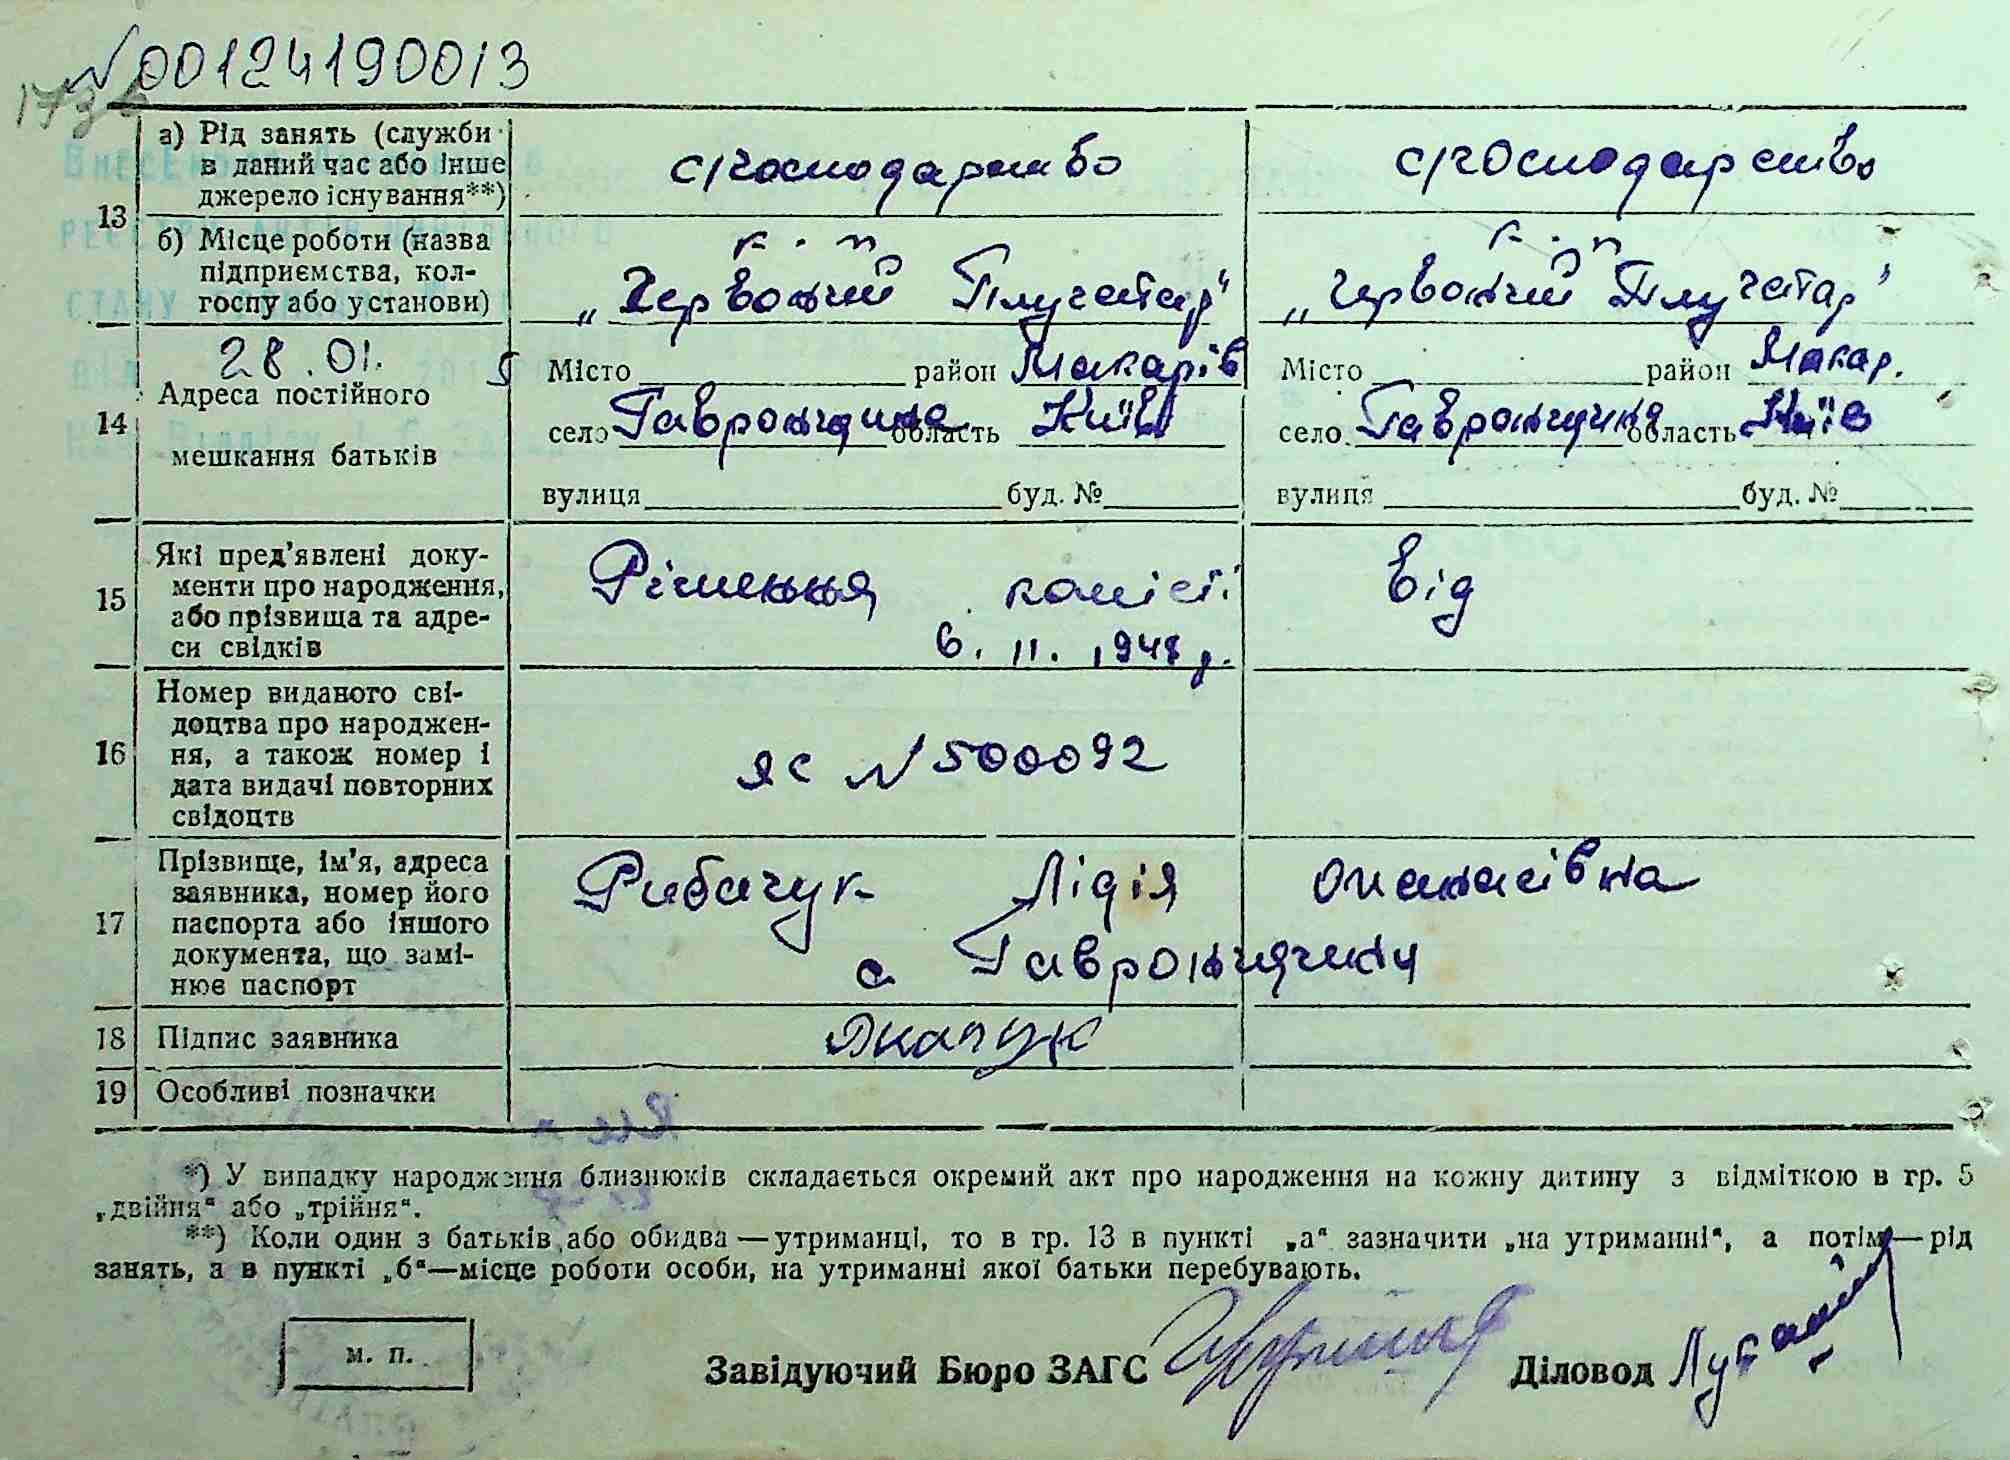 № 00124190013
13
а) Рід занять (служби
в даний час або інше
джерело існування**)
с/господарство
с/господарство
б) Місце роботи (назва
підприємства, кол-
госпу або установи)
к. п
„Червоний Плугатар"
к. п
„Червоний Плугатар"
28.01.
14
Адреса постійного
мешкання батьків
Місто район Макарів
село Гавронщина область Київ
вулиця буд. №
Місто район Макар.
село Гавронщина область Київ
вулиця буд. №
15
Які пред'явлені доку-
менти про народження,
або прізвища та адре-
си свідків
Рішення комісії від
6. 11. 1948 р.
16
Номер виданого сві-
доцтва про народжен-
ня, а також номер і
дата видачі повторних
свідоцтв
ЯС № 500092
17
Прізвище, ім'я, адреса
заявника, номер його
паспорта або іншого
документа, що замі-
нює паспорт
Рибачук Лідія Опанасівна
с Гавронщини
18
Підпис заявника
19
Особливі позначки
*) У випадку народження близнюків складається окремий акт про народження на кожну дитину з відміткою в гр. 5
„двійня“ або „трійня“.
**) Коли один з батьків або обидва — утриманці, то в гр. 13 в пункті „а“ зазначити „на утриманні“, а потім — рід
занять, а в пункті „б“—місце роботи особи, на утриманні якої батьки перебувають.
м. п.
Завідуючий Бюро ЗАГС
Діловод